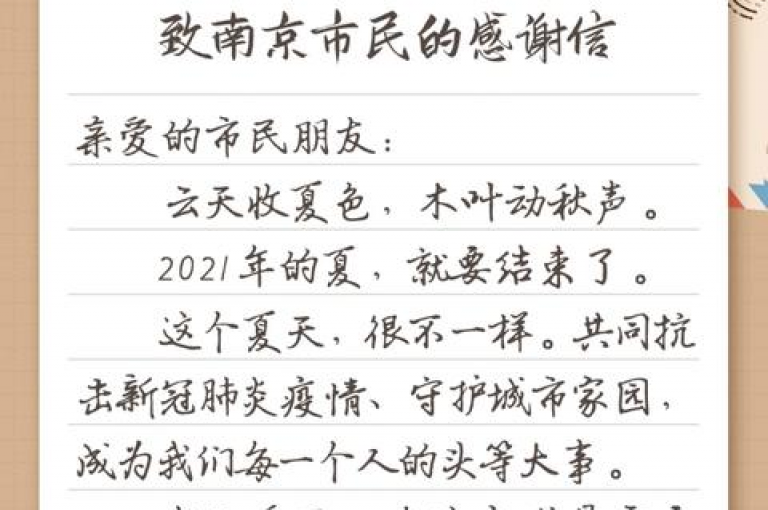 致南京市民的感谢信
亲爱的市民朋友：
云天收夏色，木叶动秋声。
2021年的夏，就要结束了。
这个夏天，很不一样。共同抗
击新冠肺炎疫情、守护城市家园，
成为我们每一个人的头等大事。